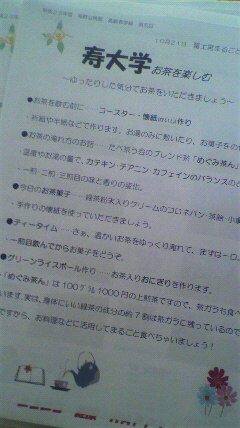 寿大学お茶を楽しむ
～ゆったりした気分でお茶をいただきましょう～
●お茶を飲む前に……コースター・懐紙(かいし)作り
・折紙や半紙などで作ります。お湯のみに敷いたり、お菓子をの
●お茶の淹れ方のお話……たべ茶う会のブレンド茶「めぐみ茶ん」
・温度やお湯の量で、カテキン・テアニン・カフェインのバランスの
・一煎 二煎 三煎目の味と香りの変化。
●今日のお茶菓子……緑茶粉末入りクリームのコロネパン・茶飴・小
・手作りの懐紙を使っていただきましょう。
●ティータイム……さぁ、温かいお茶をゆっくり淹れて、まずは一口
・一煎目飲んでからお菓子をどうぞ。
●グリーンライスボール作り……お茶入りおにぎりを作ります。
「めぐみ茶ん」は100グラム1000円の上煎茶ですので、茶ガラも食べ
います。実は、身体にいい緑茶の成分の約7割は茶ガラに残っているので
ですから、お料理などに活用してまるごと食べちゃいましょう！